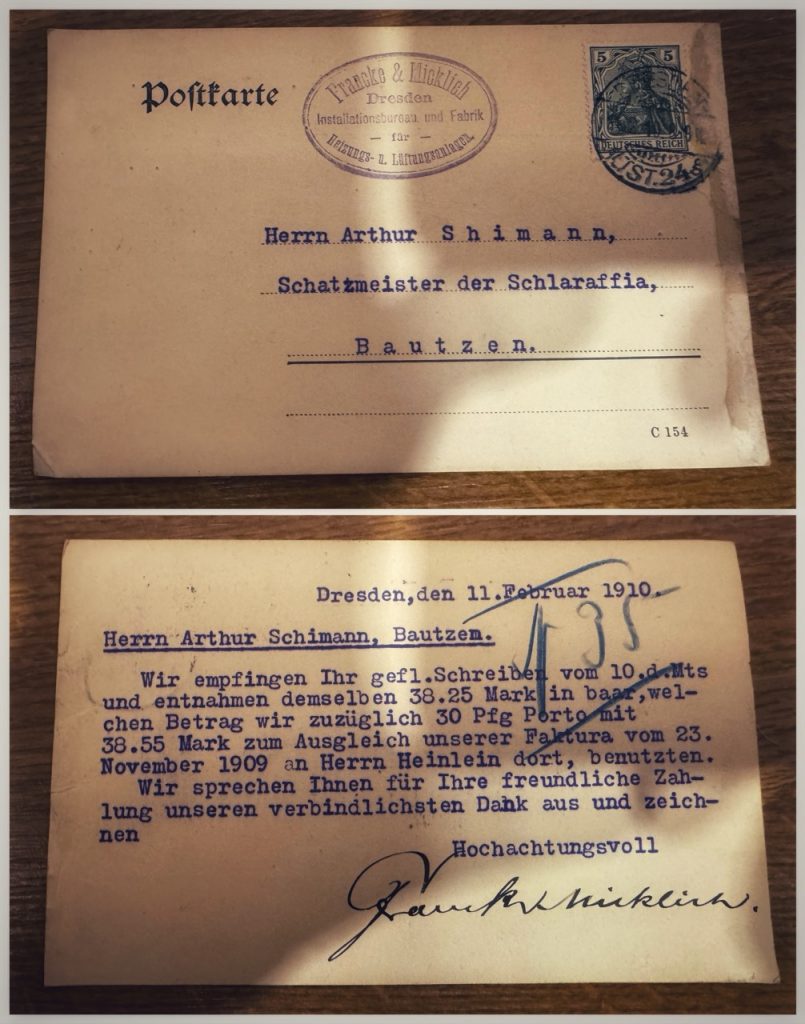 Postkarte
Francke & Micklich
Dresden
Installationsbureau und Fabrik
— für —
Heizungs- u. Lüftungsanlagen.
5 5
DEUTSCHES REICH
UST.24
Herrn Arthur S h i m a n n,
Schatzmeister der Schlaraffia,
B a u t z e n.
C 154
Dresden,den 11.Februar 1910.
Herrn Arthur Schimann, Bautzen.
Wir empfingen Ihr gefl.Schreiben vom 10.d.Mts
und entnahmen demselben 38.25 Mark in baar,wel-
chen Betrag wir zuzüglich 30 Pfg Porto mit
38.55 Mark zum Ausgleich unserer Faktura vom 23.
November 1909 an Herrn Heinlein dort, benutzten.
Wir sprechen Ihnen für Ihre freundliche Zah-
lung unseren verbindlichsten Dank aus und zeich-
nen
Hochachtungsvoll
Francke & Micklich.